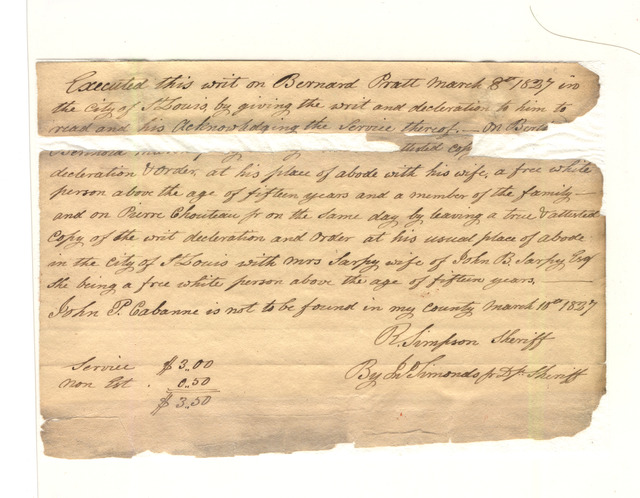 Executed this writ on Bernard Pratt March 8th 1837 in
the City of St Louis, by giving the writ and decleration to him to
read and his Acknowledging the Service thereof. — On
attested copy
decleration & Order, at his place of abode with his wife, a free white
person above the age of fifteen years and a member of the family —
and on Pierre Chouteau jr on the same day by leaving a true & attested
Copy of the writ decleration and Order at his usual place of abode
in the City of St Louis with Mrs Sarpy wife of John B. Sarpy, Esqr
She being a free white person above the age of fifteen years. —
John P. Cabanne is not to be found in my county March 10th 1837
R Simpson Sheriff
By Jno Simonds jr Dpt Sheriff
Service $3.00
Non Est . 0.50
$3.50